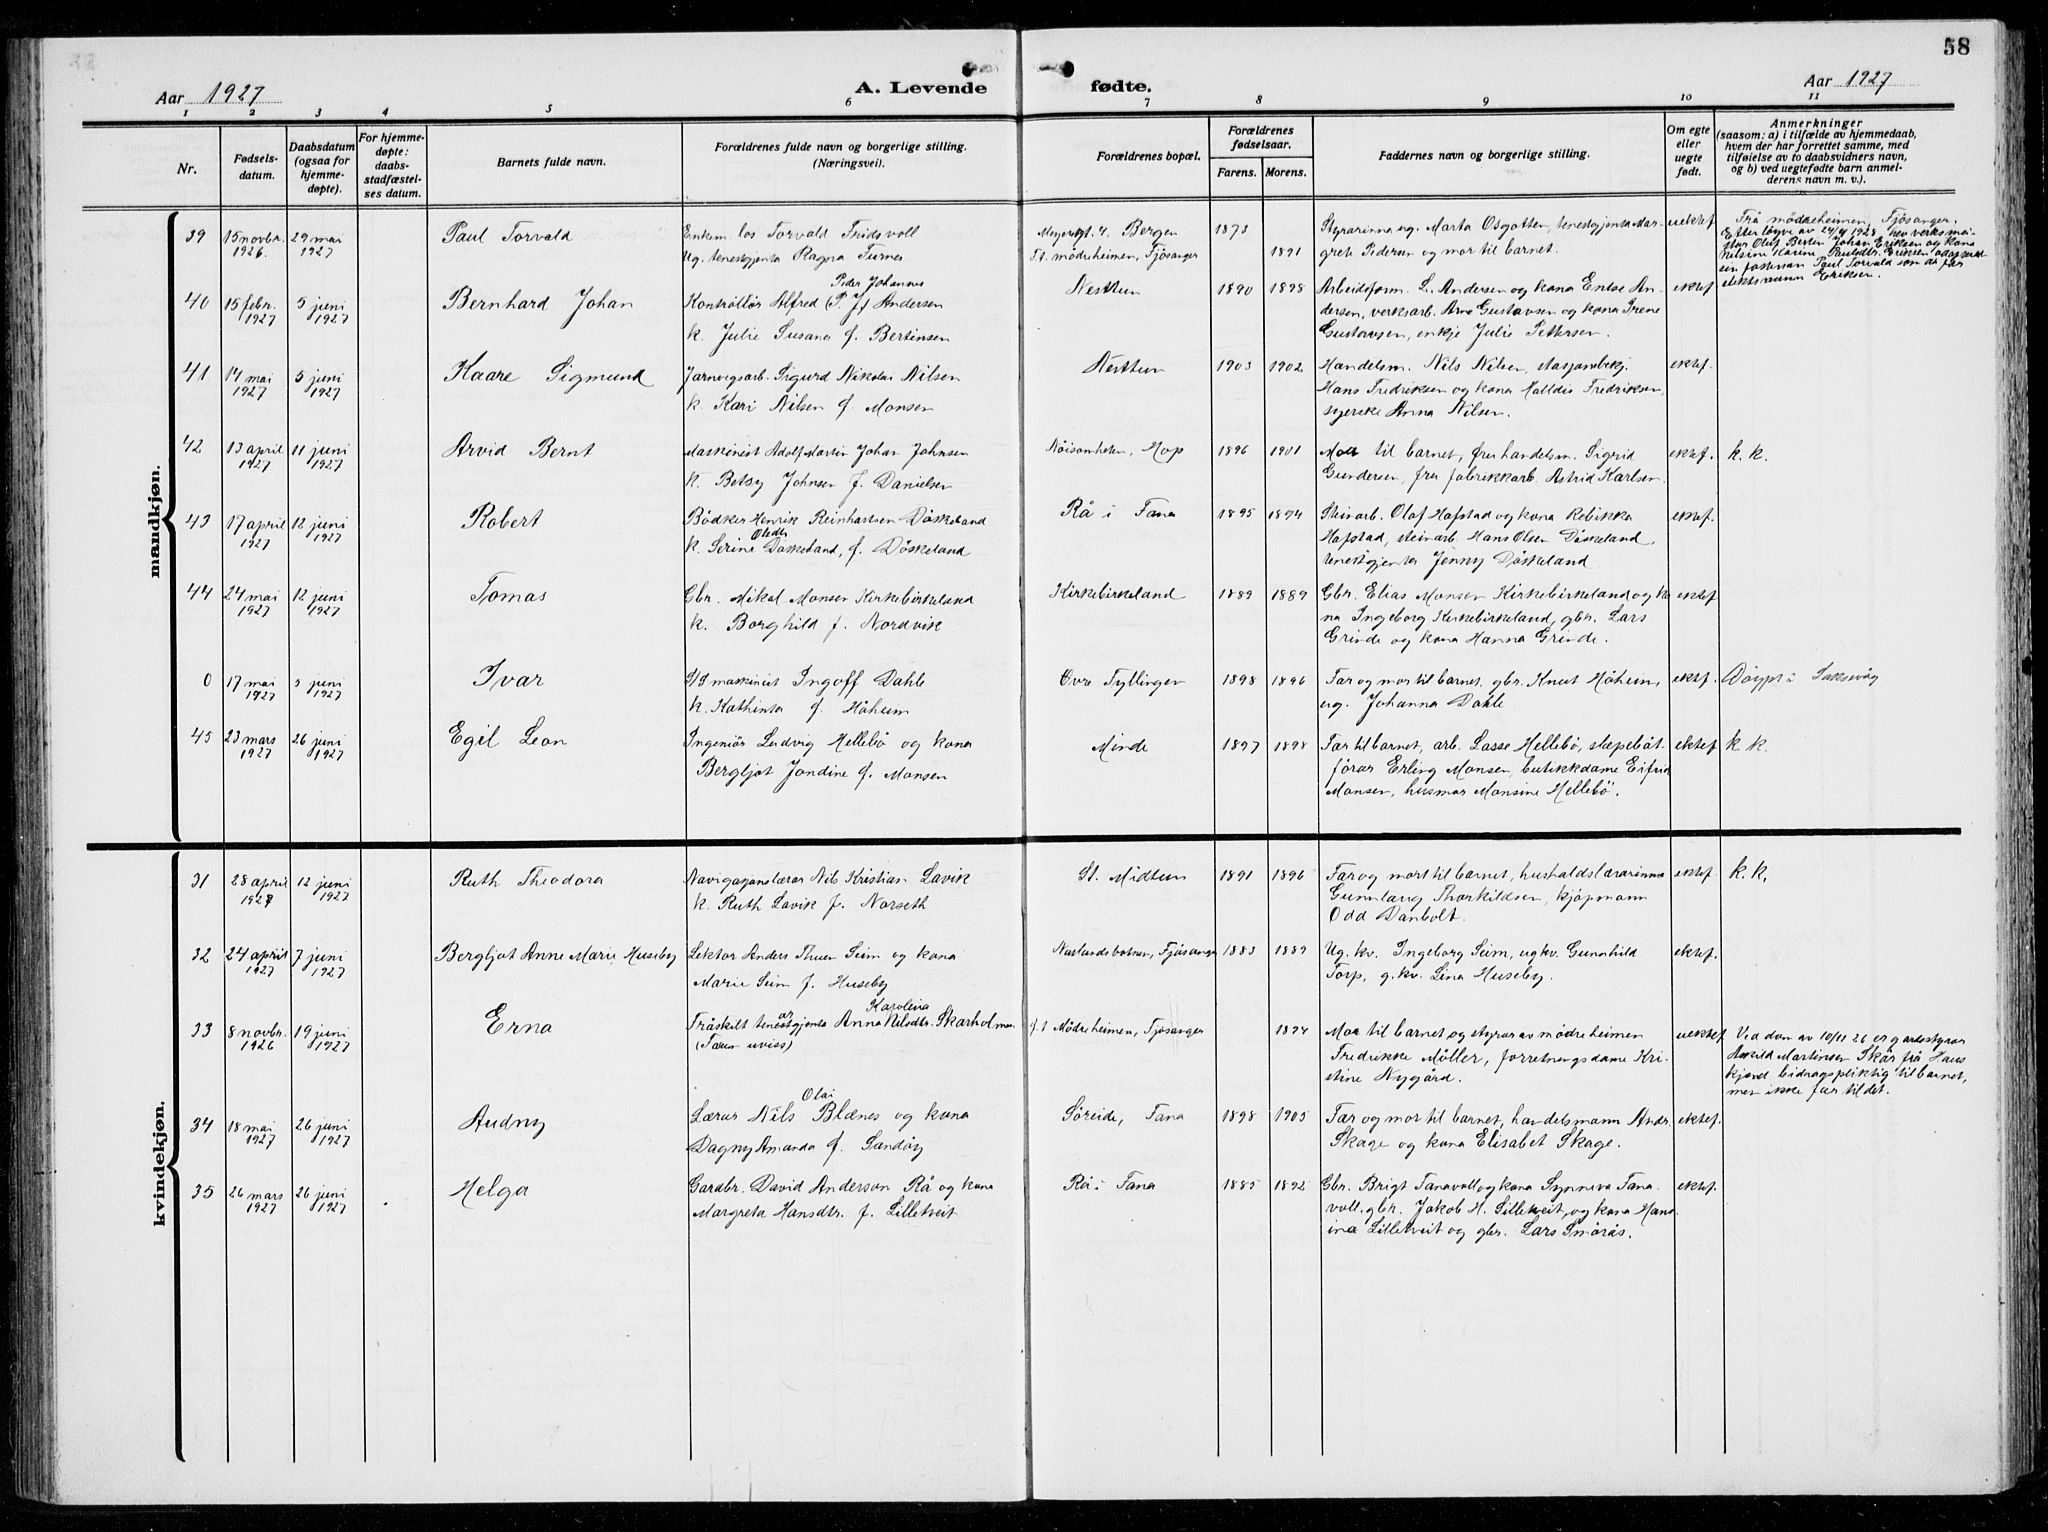 58
Aar 1927
A. Levende fødte.
Aar 1927
1 2 3 4 5 6 7 8 9 10 11
Nr.
Fødsels-
datum.
Daabsdatum
(ogsaa for
hjemme-
døpte).
For hjemme-
døpte:
daabs-
stadfæstel-
ses datum.
Barnets fulde navn.
Forældrenes fulde navn og borgerlige stilling.
(Næringsvei).
Forældrenes bopæl.
Forældrenes
fødselsaar.
Farens. Morens.
Faddernes navn og borgerlige stilling.
Om egte
eller
uegte
født.
Anmerkninger
(saasom: a) i tilfælde av hjemmedaab,
hvem der har forrettet samme, med
tilføielse av to daabsvidners navn,
og b) ved uegtefødte barn anmel-
derens navn m. v.).
mandkjøn.
39 15 novbr. 1926. 29 mai 1927 Paul Torvald
Enkem. los Torvald Fridsvoll
Ug. tenestgjenta Ragna Furnes
Meyergt. 4, Bergen 1873
F.t. mødreheimen, Fjøsanger 1891
Styrarinna ug. Marta Osgotten, tenestgjenta Mar-
grete Pedersen og mor til barnet.
uektef
Frå mødreheimen, Fjøsanger.
Etter løyve av 24/4 1928 hev verksmei-
ster Oluf Berten Johan Eriksen og kona
Nilsine Karine Paulsdtr. Eriksen adoptert
ein fosterson Paul Torvald som då fær
slektsnamn Eriksen.
40 15 febr. 1927 5 juni 1927 Bernhard Johan
Peder Johannes
Kontrollør Alfred (P. J) Andersen
k. Julie Susana f. Bertinsen
Nesttun 1890 1898
Arbeidsform. L. Andersen og kona Enlse An-
dersen, verksarb. Arne Gustavsen og kona Irene
Gustavsen, enkje Julie Pettersen.
ektef
41 14 mai 1927 5 juni 1927 Kaare Sigmund
Jarnvegsarb. Sigurd Nikolai Nilsen
k. Kari Nilsen f. Monsen
Nesttun 1903 1902
Handelsm. Nils Nilsen, stasjonsbekj.
Hans Fredriksen og kona Halldis Fredriksen,
syerske Anna Nilsen.
ektef.
42 13 april 1927 11 juni 1927 Arvid Bernt
Maskinist Adolf Martin Johan Johnsen
k. Betsy Johnsen f. Danielsen
Nøisomheten, Hop 1896 1901
Mor til barnet, fru handelsm. Sigrid
Gundersen, fru fabrikkarb. Astrid Karlsen.
ektef. k. k.
43 17 april 1927 12 juni 1927 Robert
Bødker Henrik Reinhartsen Døskeland
Olsdtr
k. Serine Døskeland, f. Døskeland
Rå i Fana 1895 1894
Steinarb. Olaf Hafstad og kona Rebikka
Hafstad, steinarb. Hans Olsen Døskeland,
tenestgjenta Jenny Døskeland
ektef.
44 24 mai 1927 12 juni 1927 Tomas
Gbr. Mikal Monsen Kirkebirkeland
k. Borghild f. Nordvik
Kirkebirkeland 1889 1889
Gbr. Elias Monsen Kirkebirkeland og ko
na Ingeborg Kirkebirkeland, gbr. Lars
Grinde og kona Hanna Grinde.
ektef
0 17 mai 1927 5 juni 1927 Ivar
maskinist Ingolf Dahle
k. Kathinka f. Håheim
Øvre Fyllingen 1898 1896
Far og mor til barnet, gbr. Knut Håheim,
ug. Johanna Dahle
ektef. Døypt i Laksevåg
45 23 mars 1927 26 juni 1927 Egil Leon
Ingeniør Ludvig Hellebø og kona
Bergljot Jondine f. Monsen
Minde 1897 1898
Far til barnet, arb. Lasse Hellebø, slæpebåt-
førar Erling Monsen, butikkdame Eifrid
Monsen, husmor Monsine Hellebø.
ektef k. k.
kvindekjøn.
31 28 april 1927 12 juni 1927 Ruth Theodora
Navigasjonslærar Nils Kristian Lavik
k. Ruth Lavik f. Norseth
St. Midtun 1891 1896
Far og mor til barnet, hushaldslærarinne
Gunnlaug Thorkildsen, kjøpmann
Odd Danbolt.
ektef. k. k.
32 24 april 1927 7 juni 1927 Bergljot Anne Marie Huseby
Lektor Anders Thuen Seim og kona
Marie Seim f. Huseby
Nustandsbotnen, Fjøsanger 1883 1889
Ug. kv. Ingeborg Seim, ug kv. Gunnhild
Torp, g. kv. Lina Huseby.
ektef.
33 8 novbr. 1926 19 juni 1927 Erna
Karolina
Fråskilt tenestgjenta Anna Nilsdtr. Skarholmen
(Faren uviss)
f. t Mødreheimen, Fjøsanger 1894
Mor til barnet og styrar av mødreheimen
Fredrikke Møller, forretningsdame Kri-
stine Nygård.
uektef
Ved dom av 10/11 26 er gardstyrar
Askild Martinsen Skår frå Haus
kjend bidragspliktig til barnet,
men ikke far til det.
34 18 mai 1927 26 juni 1927 Audny
Olai
Lærar Nils Blænes og kona
Dagny Amanda f. Sandøy
Søreide, Fana 1898 1905
Far og mor til barnet, handelsmann Andr.
Skage og kona Elisabet Skage.
ektef.
35 26 mars 1927 26 juni 1927 Helga
Gardbr. David Anderson Rå og kona
Margreta Hansdtr. f. Lilletveit
Rå i Fana 1885 1892
Gbr. Brigt Fanavoll og kona Synneva Fana-
voll, gbr. Jakob H. Lilletveit og kona Han-
ina Lilletveit og gbr. Lars Smørås.
ektef.